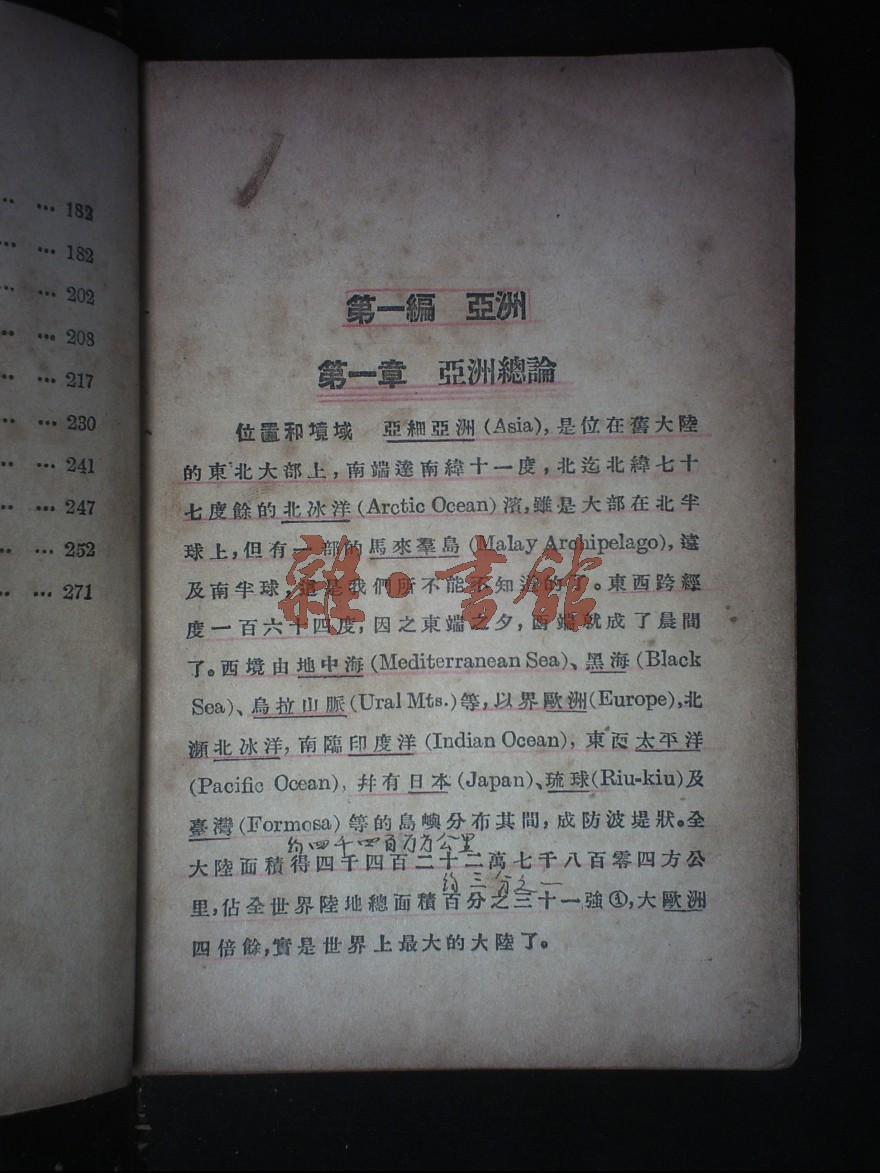 … 182
… 182
… 202
… 208
… 217
… 230
… 241
… 247
… 252
… 271
第一編　亞洲
第一章　亞洲總論
位置和境域　亞細亞洲(Asia)，是位在舊大陸
的東北大部上，南端達南緯十一度，北迄北緯七十
七度餘的北冰洋(Arctic Ocean)濱，雖是大部在北半
球上，但有一部的馬來羣島(Malay Archipelago)，遠
及南半球，這是我們所不能不知道的了。東西跨經
度一百六十四度，因之東端之夕，西端就成了晨間
了。西境由地中海(Mediterranean Sea)、黑海(Black
Sea)、烏拉山脈(Ural Mts.)等，以界歐洲(Europe)，北
瀕北冰洋，南臨印度洋(Indian Ocean)，東面太平洋
(Pacific Ocean)，幷有日本(Japan)、琉球(Riu-kiu)及
臺灣(Formosa)等的島嶼分布其間，成防波堤狀。全
約四千四百万方公里
大陸面積得四千四百二十二萬七千八百零四方公
約三分之一
里，佔全世界陸地總面積百分之三十一強①，大歐洲
四倍餘，實是世界上最大的大陸了。
雜·書館